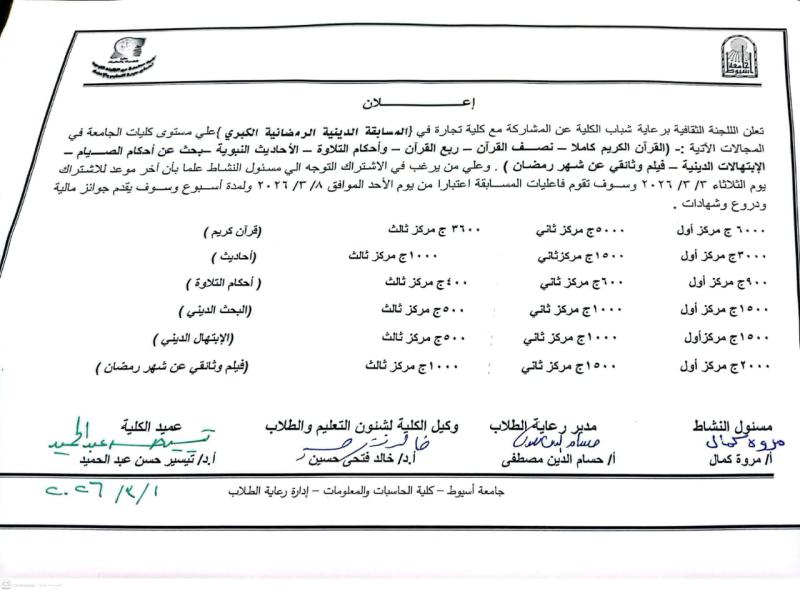 جامعة أسيوط
إعـــــلان
تعلن اللجنة الثقافية برعاية شباب الكلية عن المشاركة مع كلية تجارة في {المسابقة الدينية الرمضانية الكبري} علي مستوى كليات الجامعة في
المجالات الآتية :- (القرآن الكريم كاملا – نصف القرآن – ربع القرآن – وأحكام التلاوة – الأحاديث النبوية – بحث عن أحكام الصيام –
الإبتهالات الدينية – فيلم وثائقي عن شهر رمضان ) . وعلي من يرغب في الاشتراك التوجه الي مسئول النشاط علما بأن أخر موعد للاشتراك
يوم الثلاثاء ٢٠٢٦/٣/٣ وسوف تقوم فاعليات المسابقة اعتبارا من يوم الأحد الموافق ٢٠٢٦/٣/٨ ولمدة أسبوع وسوف يقدم جوائز مالية
ودروع وشهادات .
٦٠٠٠ج مركز أول ٥٠٠٠ج مركز ثاني ٣٦٠٠ج مركز ثالث (قرآن كريم )
٣٠٠٠ج مركز أول ١٥٠٠ج مركزثاني ١٠٠٠ج مركز ثالث (أحاديث )
٩٠٠ج مركز أول ٦٠٠ج مركز ثاني ٤٠٠ج مركز ثالث ( أحكام التلاوة )
١٥٠٠ج مركز أول ١٠٠٠ج مركز ثاني ٥٠٠ج مركز ثالث (البحث الديني )
١٥٠٠ج مركزأول ١٠٠٠ج مركز ثاني ٥٠٠ج مركز ثالث (الإبتهال الديني )
٢٠٠٠ج مركز أول ١٥٠٠ج مركز ثاني ١٠٠٠ج مركز ثالث (فيلم وثائقي عن شهر رمضان )
مسئول النشاط مدير رعاية الطلاب وكيل الكلية لشئون التعليم والطلاب عميد الكلية
مروة كمال
أ/ مروة كمال أ/ حسام الدين مصطفى أ.د/ خالد فتحى حسين أ.د/ تيسير حسن عبد الحميد
جامعة أسيوط – كلية الحاسبات والمعلومات – إدارة رعاية الطلاب
٢٠٢٦/٣/١